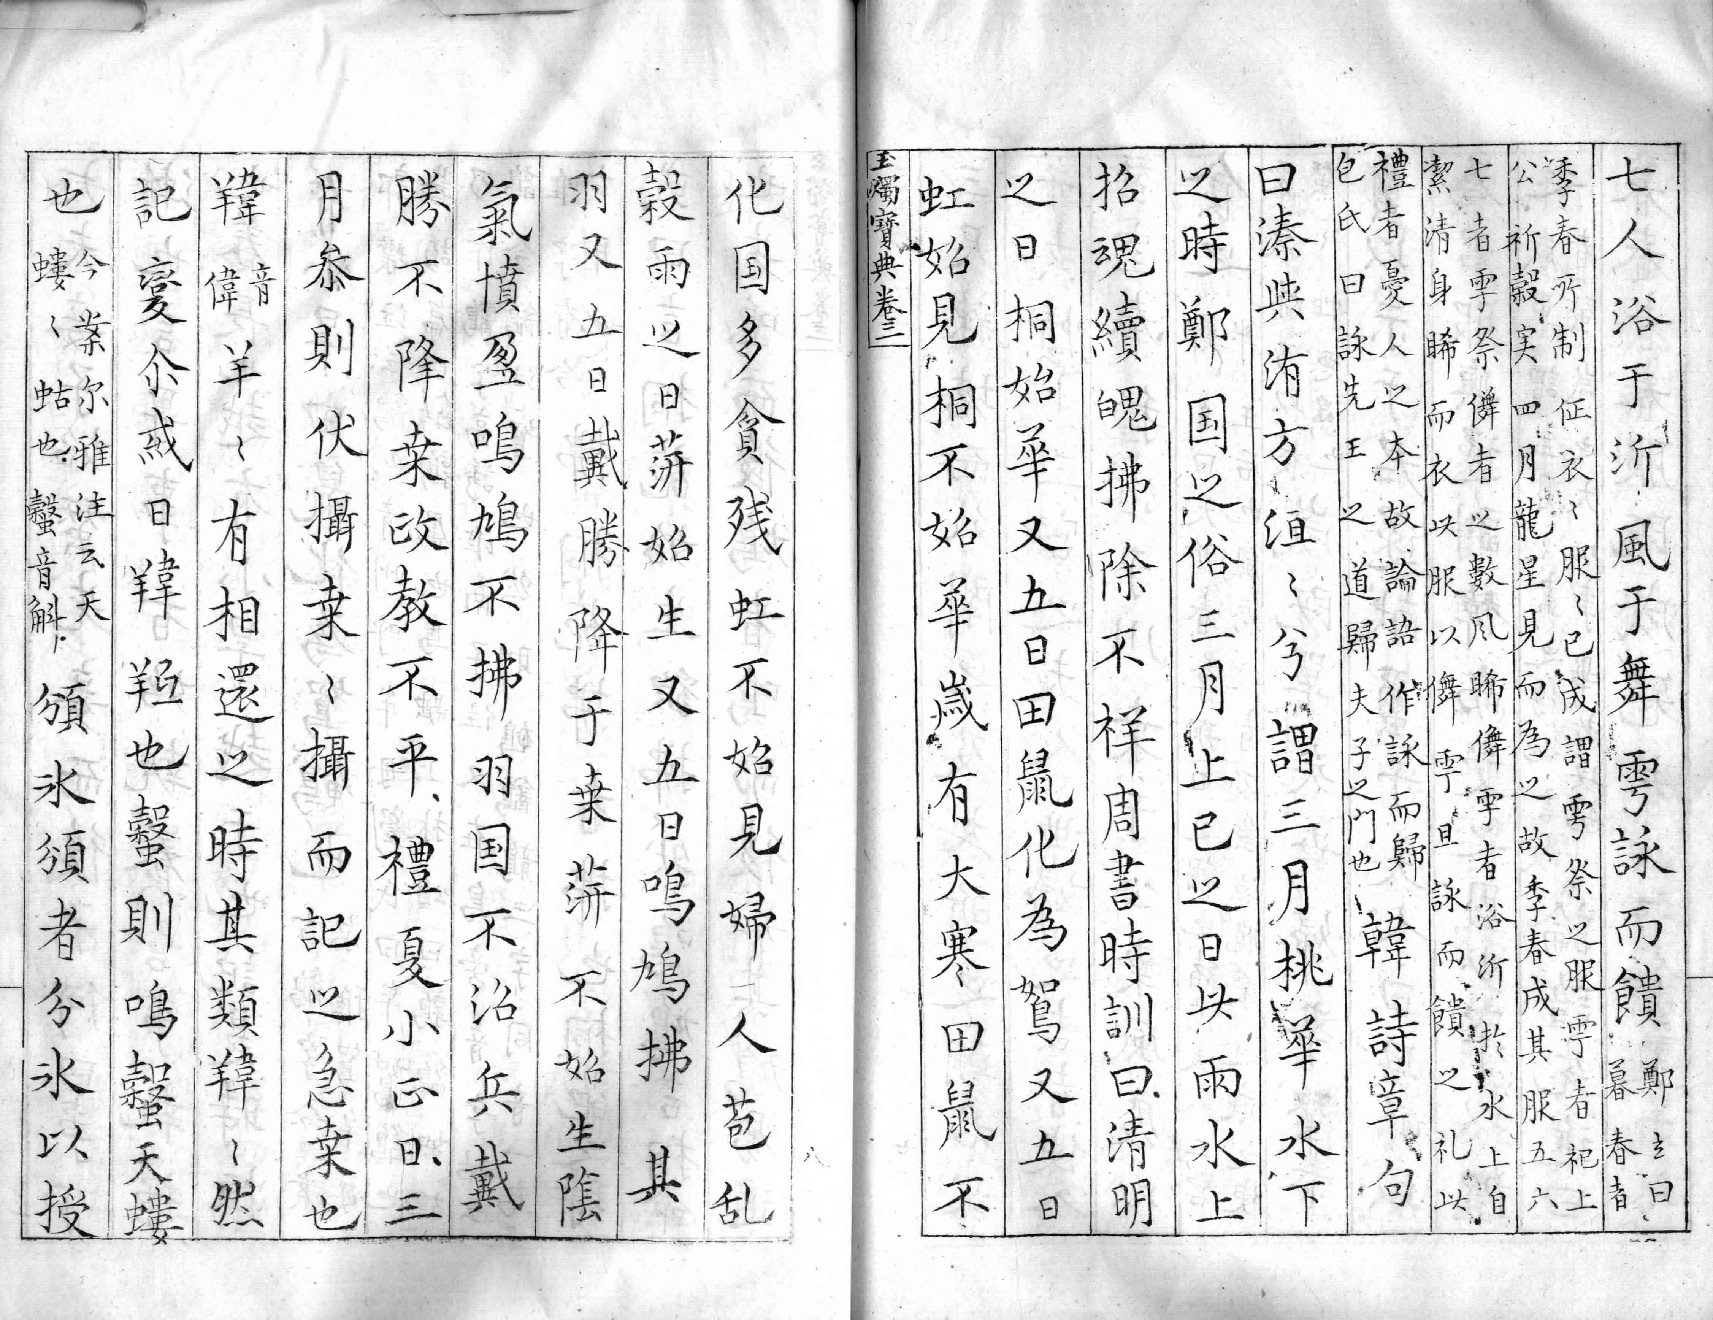 七人浴于沂風于舞雩詠而饋鄭玄曰暮春者
季春所制征衣〻服〻已成謂雩祭之服雩者祀上
公祈穀实四月龍星見而為之故季春成其服五六
七者雩祭儛者之數風晞儛雩者浴沂於水上自
絜清身晞而衣此服以儛雩且詠而饋之礼此
禮者憂人之本故論語作詠而歸
包氏曰詠先王之道歸夫子之門也韓詩章句
曰溱與洧方洹〻兮謂三月桃華水下
之時鄭国之俗三月上巳之日此雨水上
招魂續魄拂除不祥周書時訓曰清明
之日桐始華又五日田鼠化為鴽又五日
虹始見桐不始華歲有大寒田鼠不
玉燭寶典卷三
化国多貪残虹不始見婦人苞乱
穀雨之日蓱始生又五日鳴鳩拂其
羽又五日戴勝降于桒蓱不始生陰
氣憤盈鳴鳩不拂羽国不治兵戴
勝不降桒政教不平禮夏小正曰三
月叅則伏攝桒〻攝而記之急桒也
𦍲音偉羊〻有相還之時其類𦍲〻然
記變尒或曰𦍲羝也螜則鳴螜天螻
也今案尔雅注云天
螻〻蛄也螜音斛頒氷頒者分氷以授
八